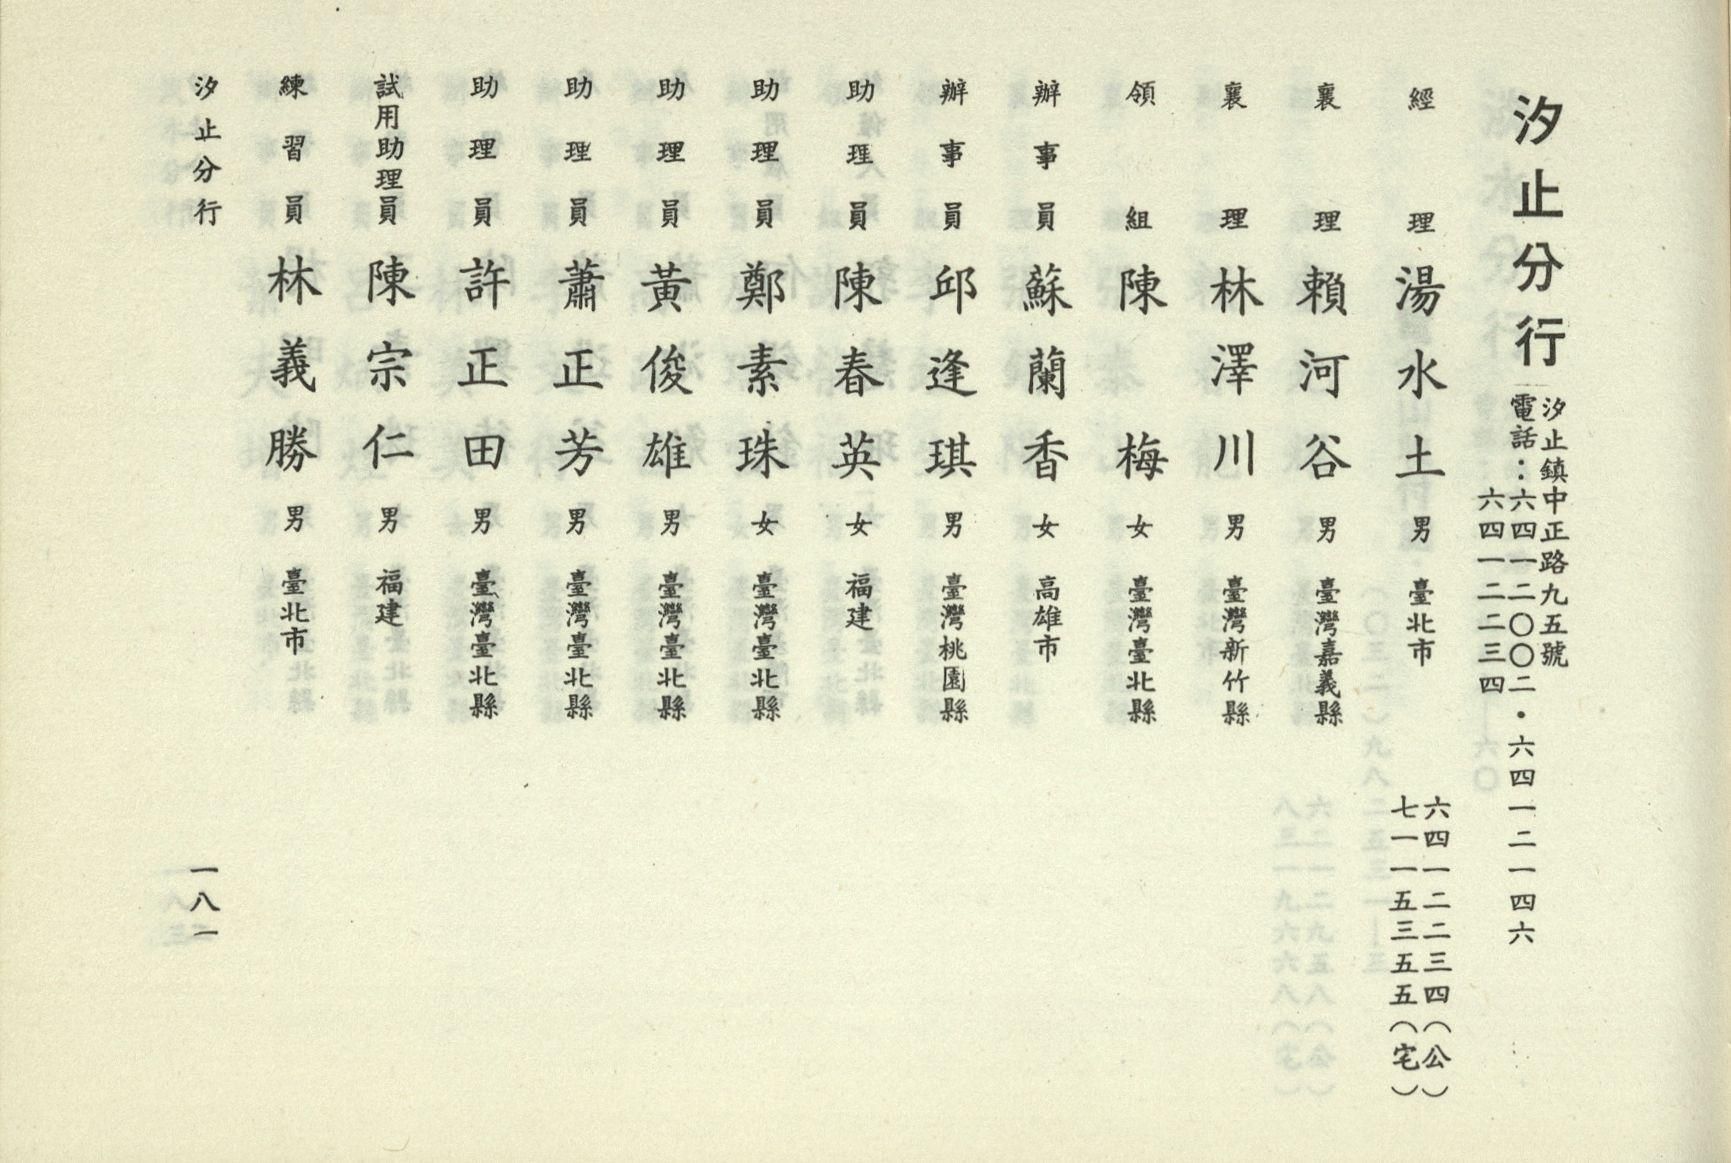 汐止分行
汐止鎮中正路九五號
電話：六四一二〇〇二・六四一二一四六
六四一二二三四
經理 湯水土 男 臺北市 六四一二二三四（公）
七一一五三五五（宅）
襄理 賴河谷 男 臺灣嘉義縣
襄理 林澤川 男 臺灣新竹縣
領組 陳梅 女 臺灣臺北縣
辦事員 蘇蘭香 女 高雄市
辦事員 邱逢琪 男 臺灣桃園縣
助理員 陳春英 女 福建
助理員 鄭素珠 女 臺灣臺北縣
助理員 黃俊雄 男 臺灣臺北縣
助理員 蕭正芳 男 臺灣臺北縣
助理員 許正田 男 臺灣臺北縣
試用助理員 陳宗仁 男 福建
練習員 林義勝 男 臺北市
汐止分行 一八一